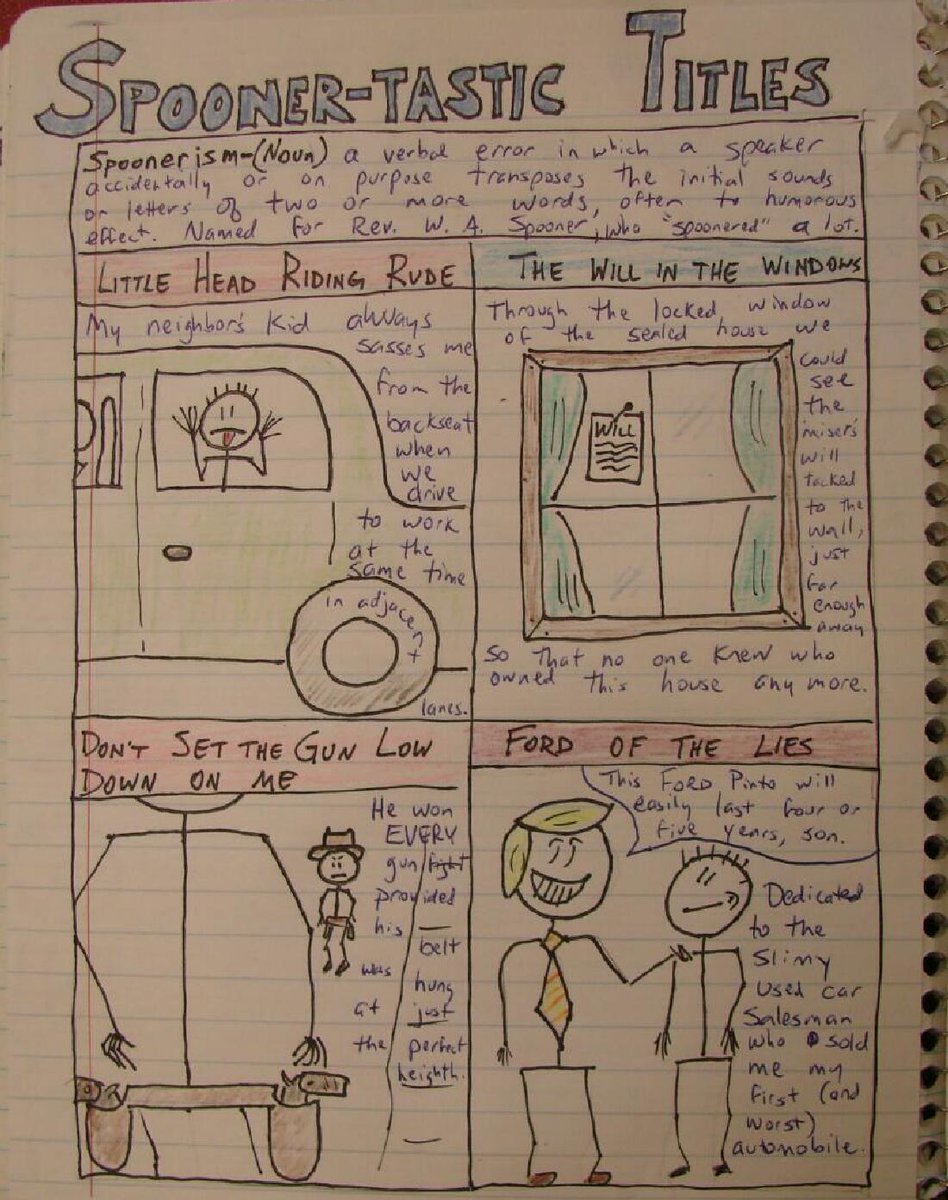 SPOONER-TASTIC TITLES
Spoonerism-(Noun) a verbal error in which a speaker
accidentally or on purpose transposes the initial sounds
or letters of two or more words, often to humorous
effect. Named for Rev. W. A. Spooner, who "spoonered" a lot.
LITTLE HEAD RIDING RUDE
My neighbor's kid always
sasses me
from the
backseat
when
we
drive
to work
at the
same time
in adjacent
lanes.
THE WILL IN THE WINDOWS
Through the locked window
of the sealed house we
could
see
the
miser's
will
tacked
to the
wall,
just
far
enough
away
so that no one knew who
owned this house any more.
WILL
DON'T SET THE GUN LOW
DOWN ON ME
He won
EVERY
gun fight
provided
his
belt
was
hung
at just
the perfect
heighth.
FORD OF THE LIES
This FORD Pinto will
easily last four or
five years, son.
Dedicated
to the
Slimy
used car
Salesman
who sold
me my
first (and
worst)
automobile.